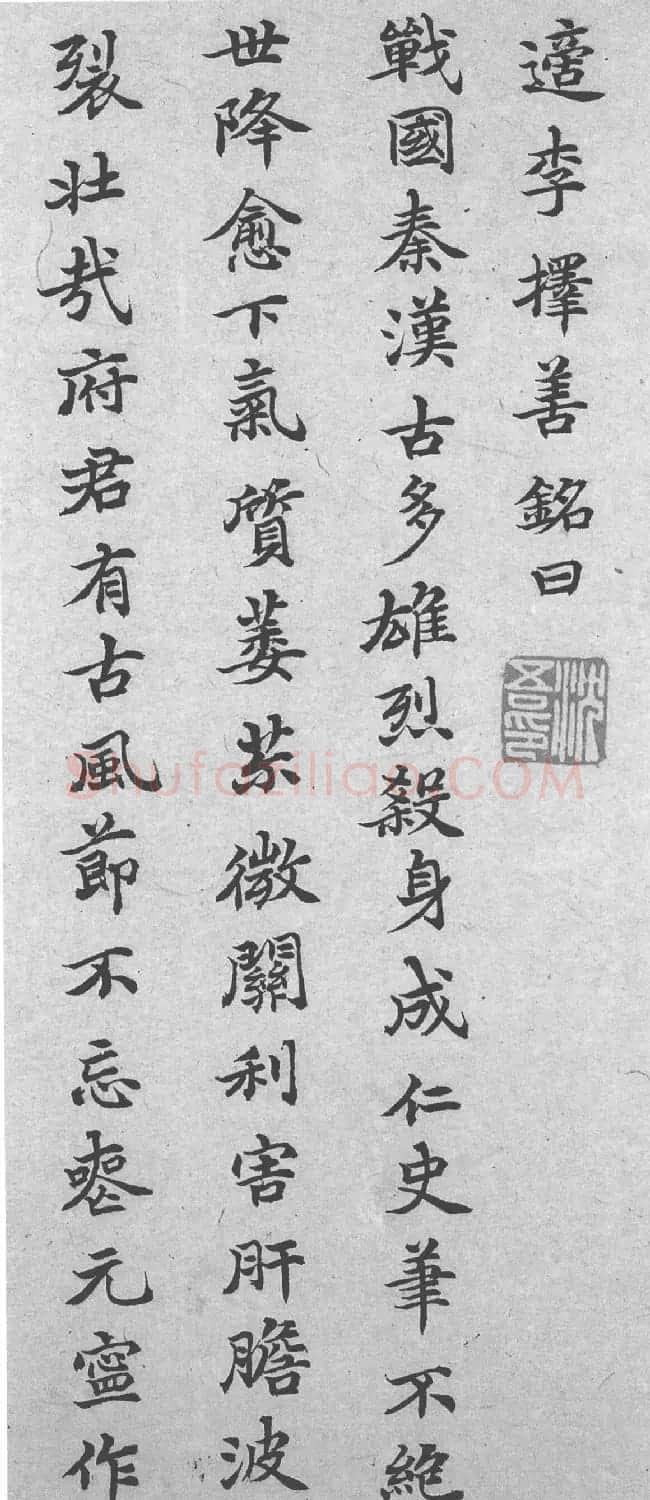 適李擇善銘曰
戰國秦漢古多雄烈殺身成仁史筆不絕
世降愈下氣質萎苶微關利害肝膽波
裂壯哉府君有古風節不忘喪元寧作
Shufaziliao.COM